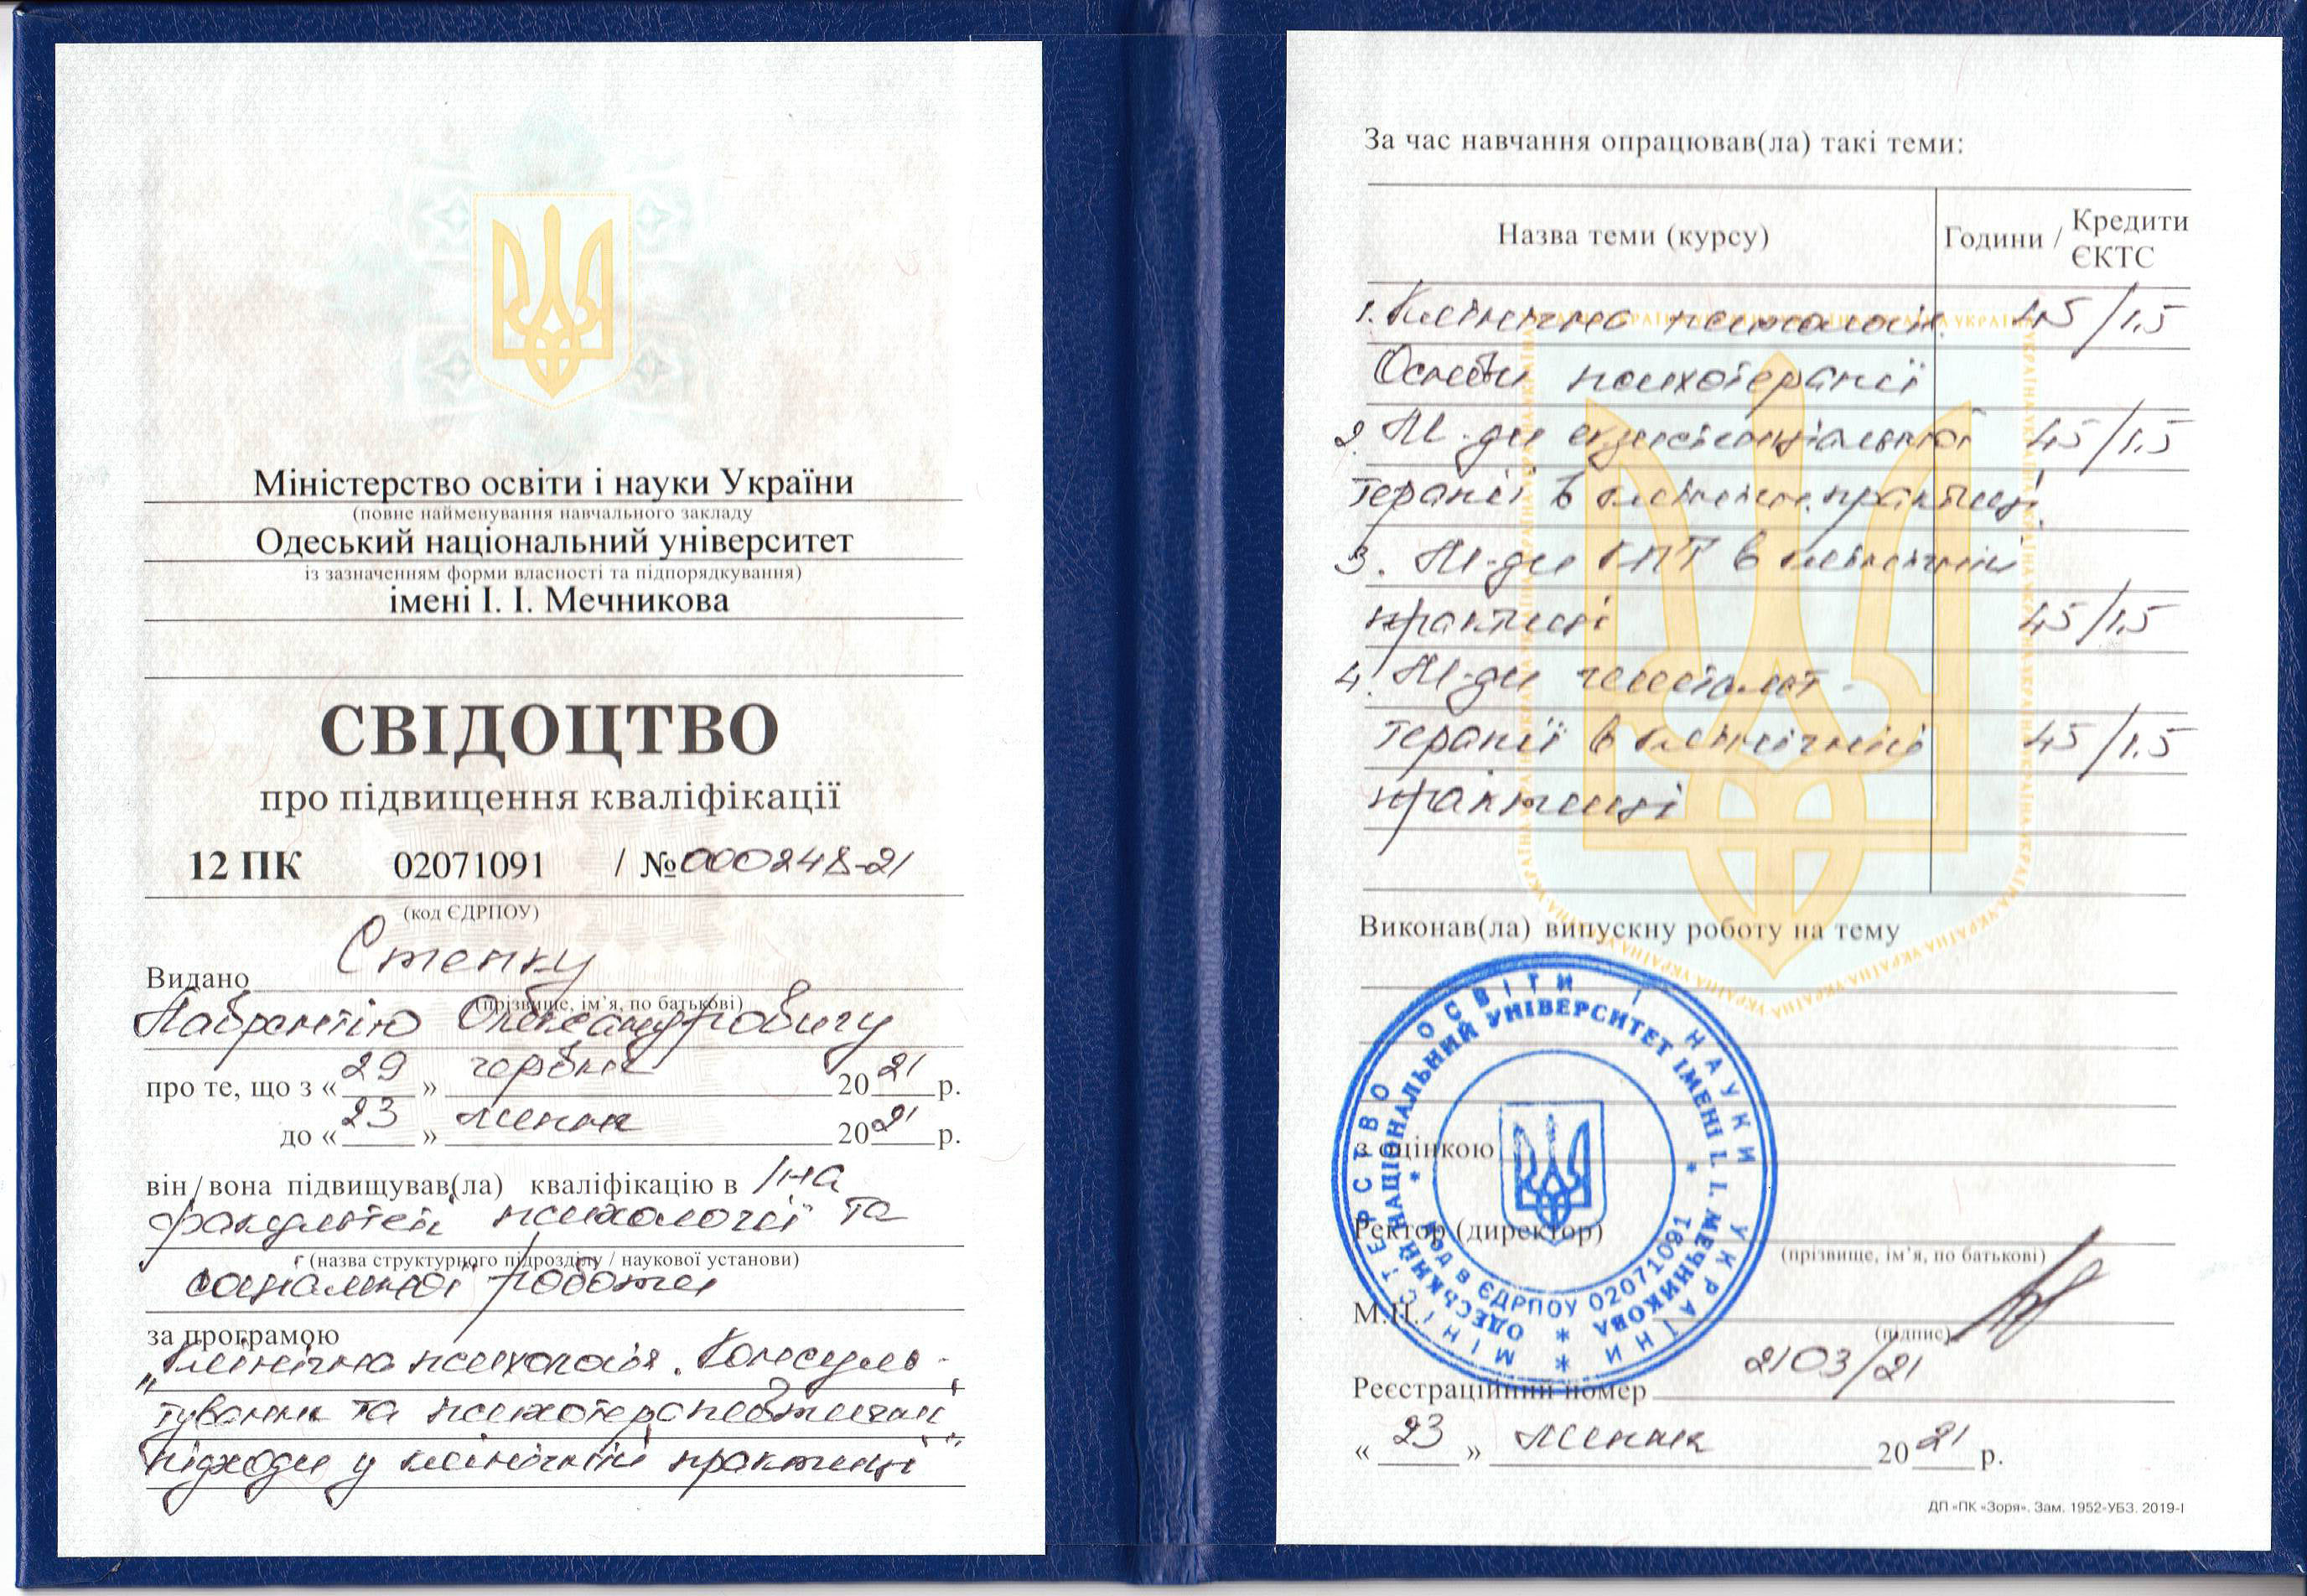 Міністерство освіти і науки України
(повне найменування навчального закладу
Одеський національний університет
із зазначенням форми власності та підпорядкування)
імені І. І. Мечникова
СВІДОЦТВО
про підвищення кваліфікації
12 ПК 02071091 / №000248-21
(код ЄДРПОУ)
Видано Степку
(прізвище, ім’я, по батькові)
Лаврентію Олександровичу
про те, що з «29» червня 2021 р.
до «23» липня 2021 р.
він/вона підвищував(ла) кваліфікацію в /на
факультеті психології та
(назва структурного підрозділу / наукової установи)
соціальної роботи
за програмою
„Клінічна психологія. Консуль-
тування та психотерапевтичні
підходи у клінічній практиці“
За час навчання опрацював(ла) такі теми:
Назва теми (курсу) Години / Кредити ЄКТС
1. Клінічна психологія. 45/1.5
Основи психотерапії
2. М-ди екзистенціальної 45/1.5
терапії в клінічн. практиці.
3. М-ди КПТ в клінічній
практиці 45/1.5
4. М-ди гештальт-
терапії в клінічній 45/1.5
практиці
Виконав(ла) випускну роботу на тему
з оцінкою
Ректор (директор)
(прізвище, ім’я, по батькові)
М.П.
(підпис)
Реєстраційний номер 2103/21
«23» липня 2021 р.
МІНІСТЕРСТВО ОСВІТИ І НАУКИ УКРАЇНИ
ОДЕСЬКИЙ НАЦІОНАЛЬНИЙ УНІВЕРСИТЕТ ІМЕНІ І. І. МЕЧНИКОВА
Код в ЄДРПОУ 02071091
ДП «ПК «Зоря». Зам. 1952-УБЗ. 2019-І